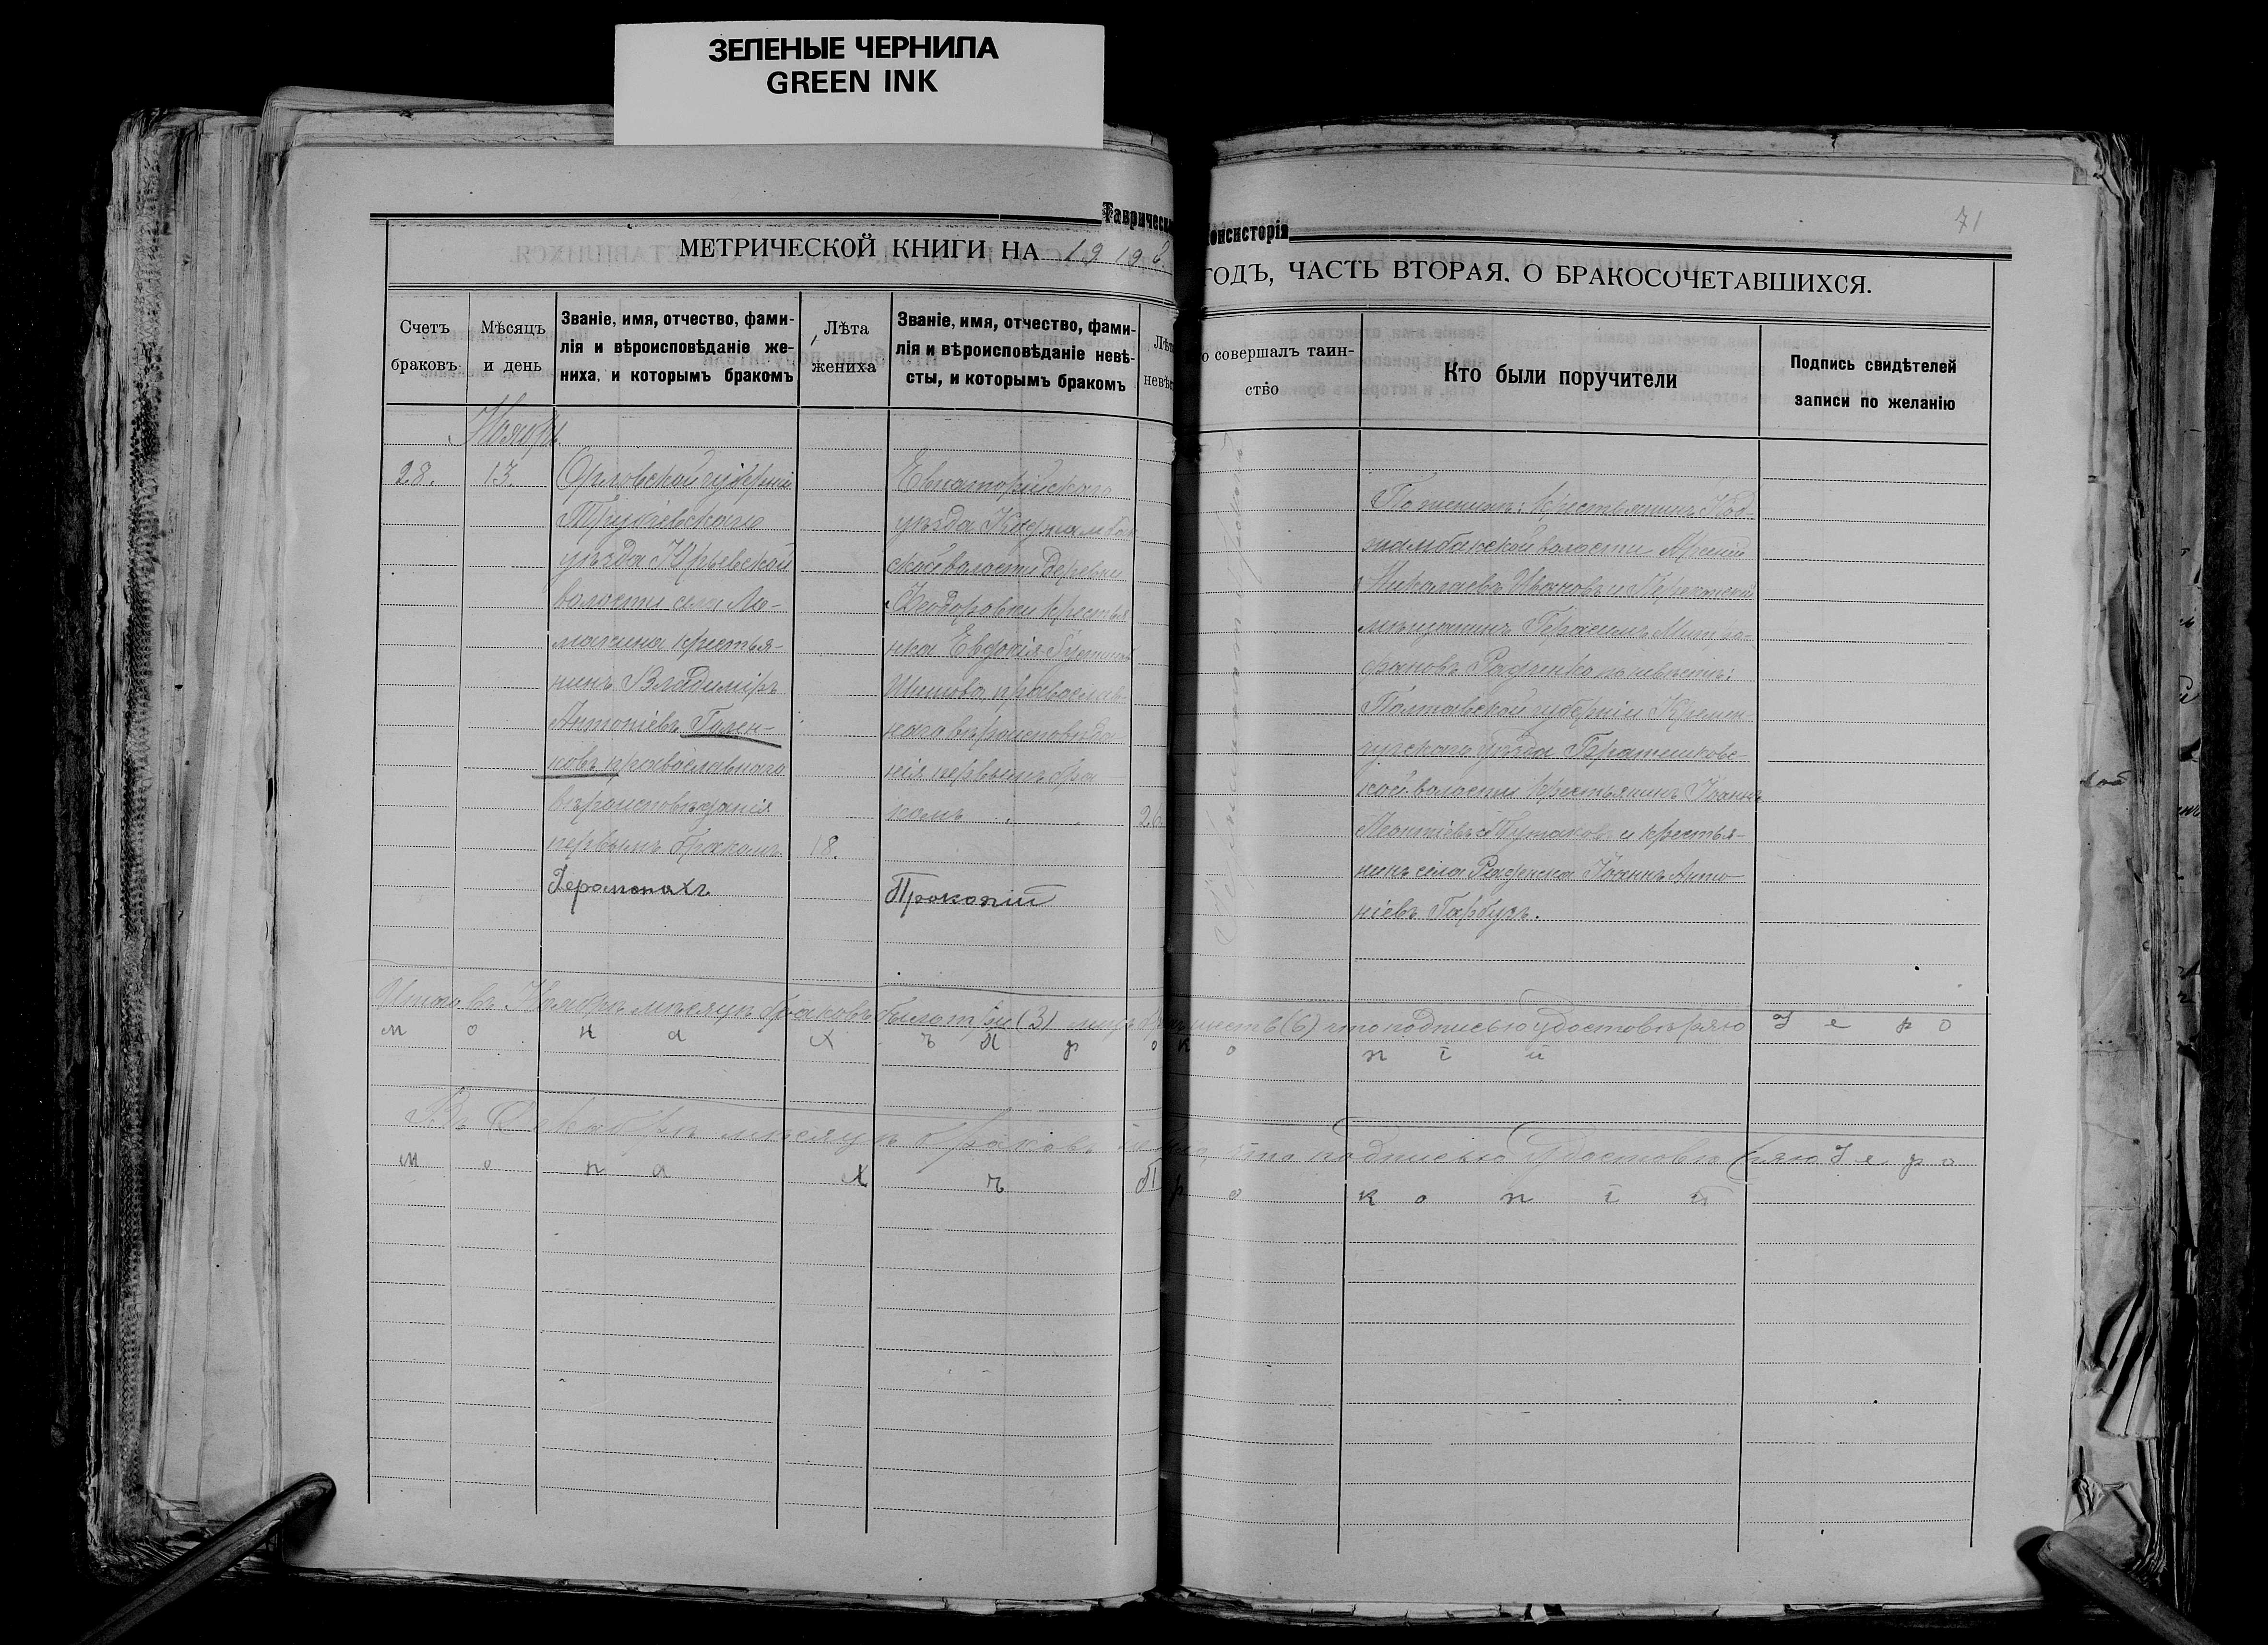 ЗЕЛЕНЫЕ ЧЕРНИЛА
GREEN INK
Таврическ
онсисторія
71
МЕТРИЧЕСКОЙ КНИГИ НА 191
ГОДЪ, ЧАСТЬ ВТОРАЯ, О БРАКОСОЧЕТАВШИХСЯ.
Счетъ
браковъ
Мѣсяцъ
и день
Званіе, имя, отчество, фами-
лія и вѣроисповѣданіе же-
ниха, и которымъ бракомъ
Лѣта
жениха
Званіе, имя, отчество, фами-
лія и вѣроисповѣданіе невѣ-
сты, и которымъ бракомъ
Лѣта
невѣс
о совершалъ таин-
ство
Кто были поручители
Подпись свидѣтелей
записи по желанію
Ноября
28.
13
Орловской губерніи
уѣзда
волости села Ло-
крестья-
нинъ Владиміръ
Антоніевъ Гален-
ковъ православнаго
вѣроисповѣданія
первымъ бракомъ
18.
Іеромонахъ
Евпаторійскаго
уѣзда
ской волости деревни
Ѳеодоровки крестья
нка Евдокія
православ-
наго вѣроисповѣда-
нія первымъ бра-
комъ
26
Прокопій
По женихѣ: крестьянинъ Код-
жамбакской волости
Николаевъ Ивановъ и Перекопскій
мѣщанинъ Герасимъ Митро-
фановъ Радченко по невѣстѣ:
Полтавской губерніи Кремен-
чугскаго уѣзда
ской волости крестьянинъ Іоаннъ
и крестья-
нинъ села Іоаннъ Анто-
ніевъ Гарбузъ.
Итого въ Ноябрѣ мѣсяцѣ браковъ было три (3) шесть (6) что подписью удостовѣряю І е р о
м о н а х ъ П р о к о п і й
Въ Декабрѣ мѣсяцѣ браковъ не было, что подписью удостовѣряю І е р о
м о н а х ъ П р о к о п і й